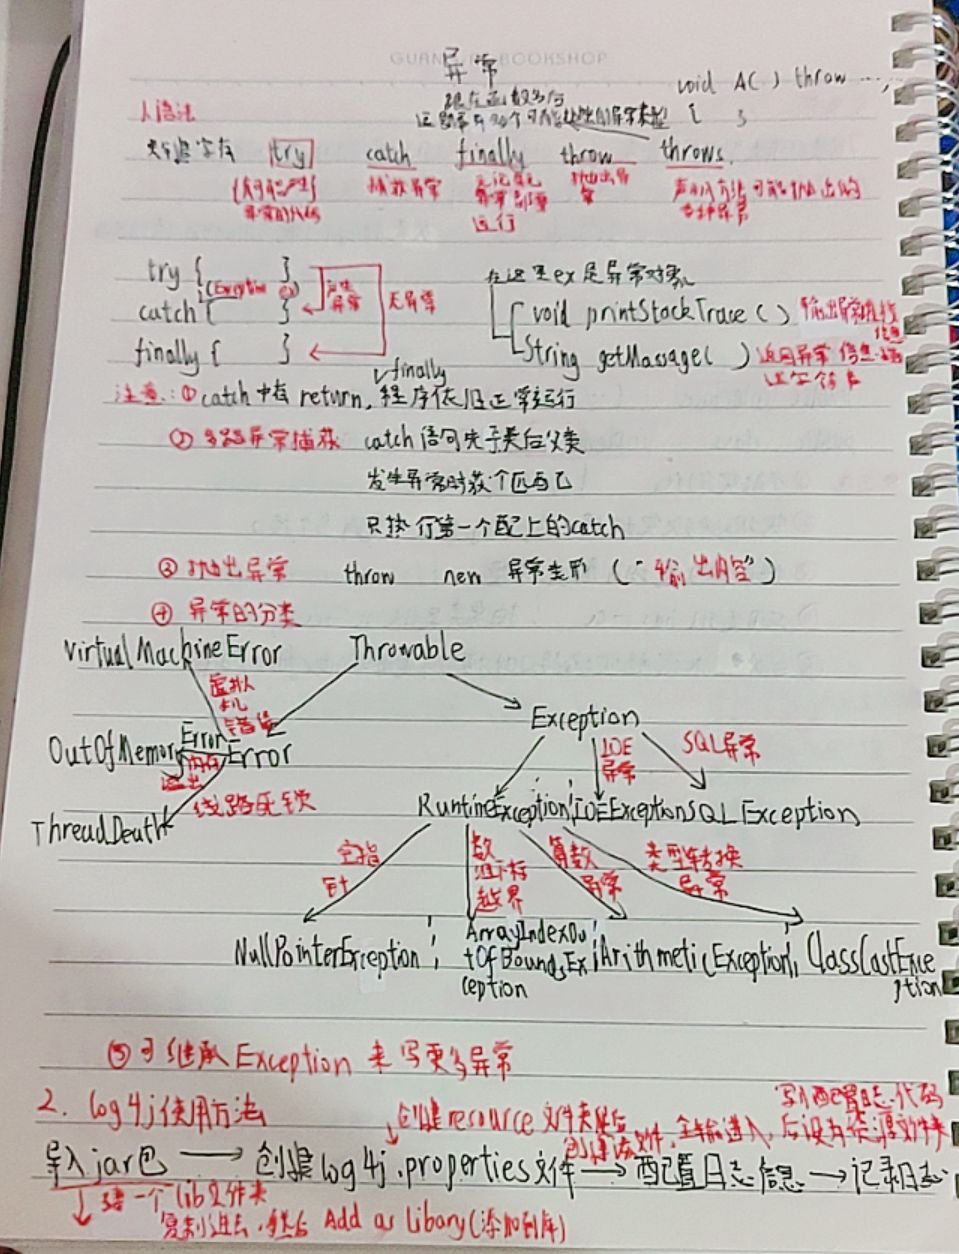 GUAN BOOKSHOP
异常
void A( ) throw ...
跟在函数名后
{ }
1 语法
关键字有 try catch finally throw throws.
有可能产生异常的代码
捕获异常
无论有无异常都要运行
抛出异常
声明方法可能抛出的各种异常
try { }
catch (Exception ex) { }
finally { }
产生异常
无异常
在这里ex是异常对象
void printStackTrace ( ) 输出异常堆栈信息
String getMassage( ) 返回异常信息
finally
注意:① catch中有 return, 程序依旧正常运行
② 多路异常捕获 catch语句先子类后父类
发生异常时 个匹配
只执行第一个配上的catch
③ 抛出异常 throw new 异常类形 ("输出内容")
④ 异常的分类
VirtualMachineError
Throwable
虚拟机错误
Exception
OutOfMemoryError
内存溢出
Error
IOE异常
SQL异常
线路死锁
ThreadDeath
RuntimeException
IOEException
SQLException
空指针
数组下标越界
算数异常
类型转换异常
NullPointerException
ArrayIndexOutOfBoundsException
ArithmeticException
ClassCastException
⑤ 可继承 Exception 来写更多异常
2. log4j使用方法
创建resource文件夹然后
写入配置日志代码
后设为资源文件夹
导入jar包 → 创建log4j.properties文件 → 配置日志信息 → 记录日志
建一个lib文件夹
复制进去,然后 Add as Libary(添加到库)